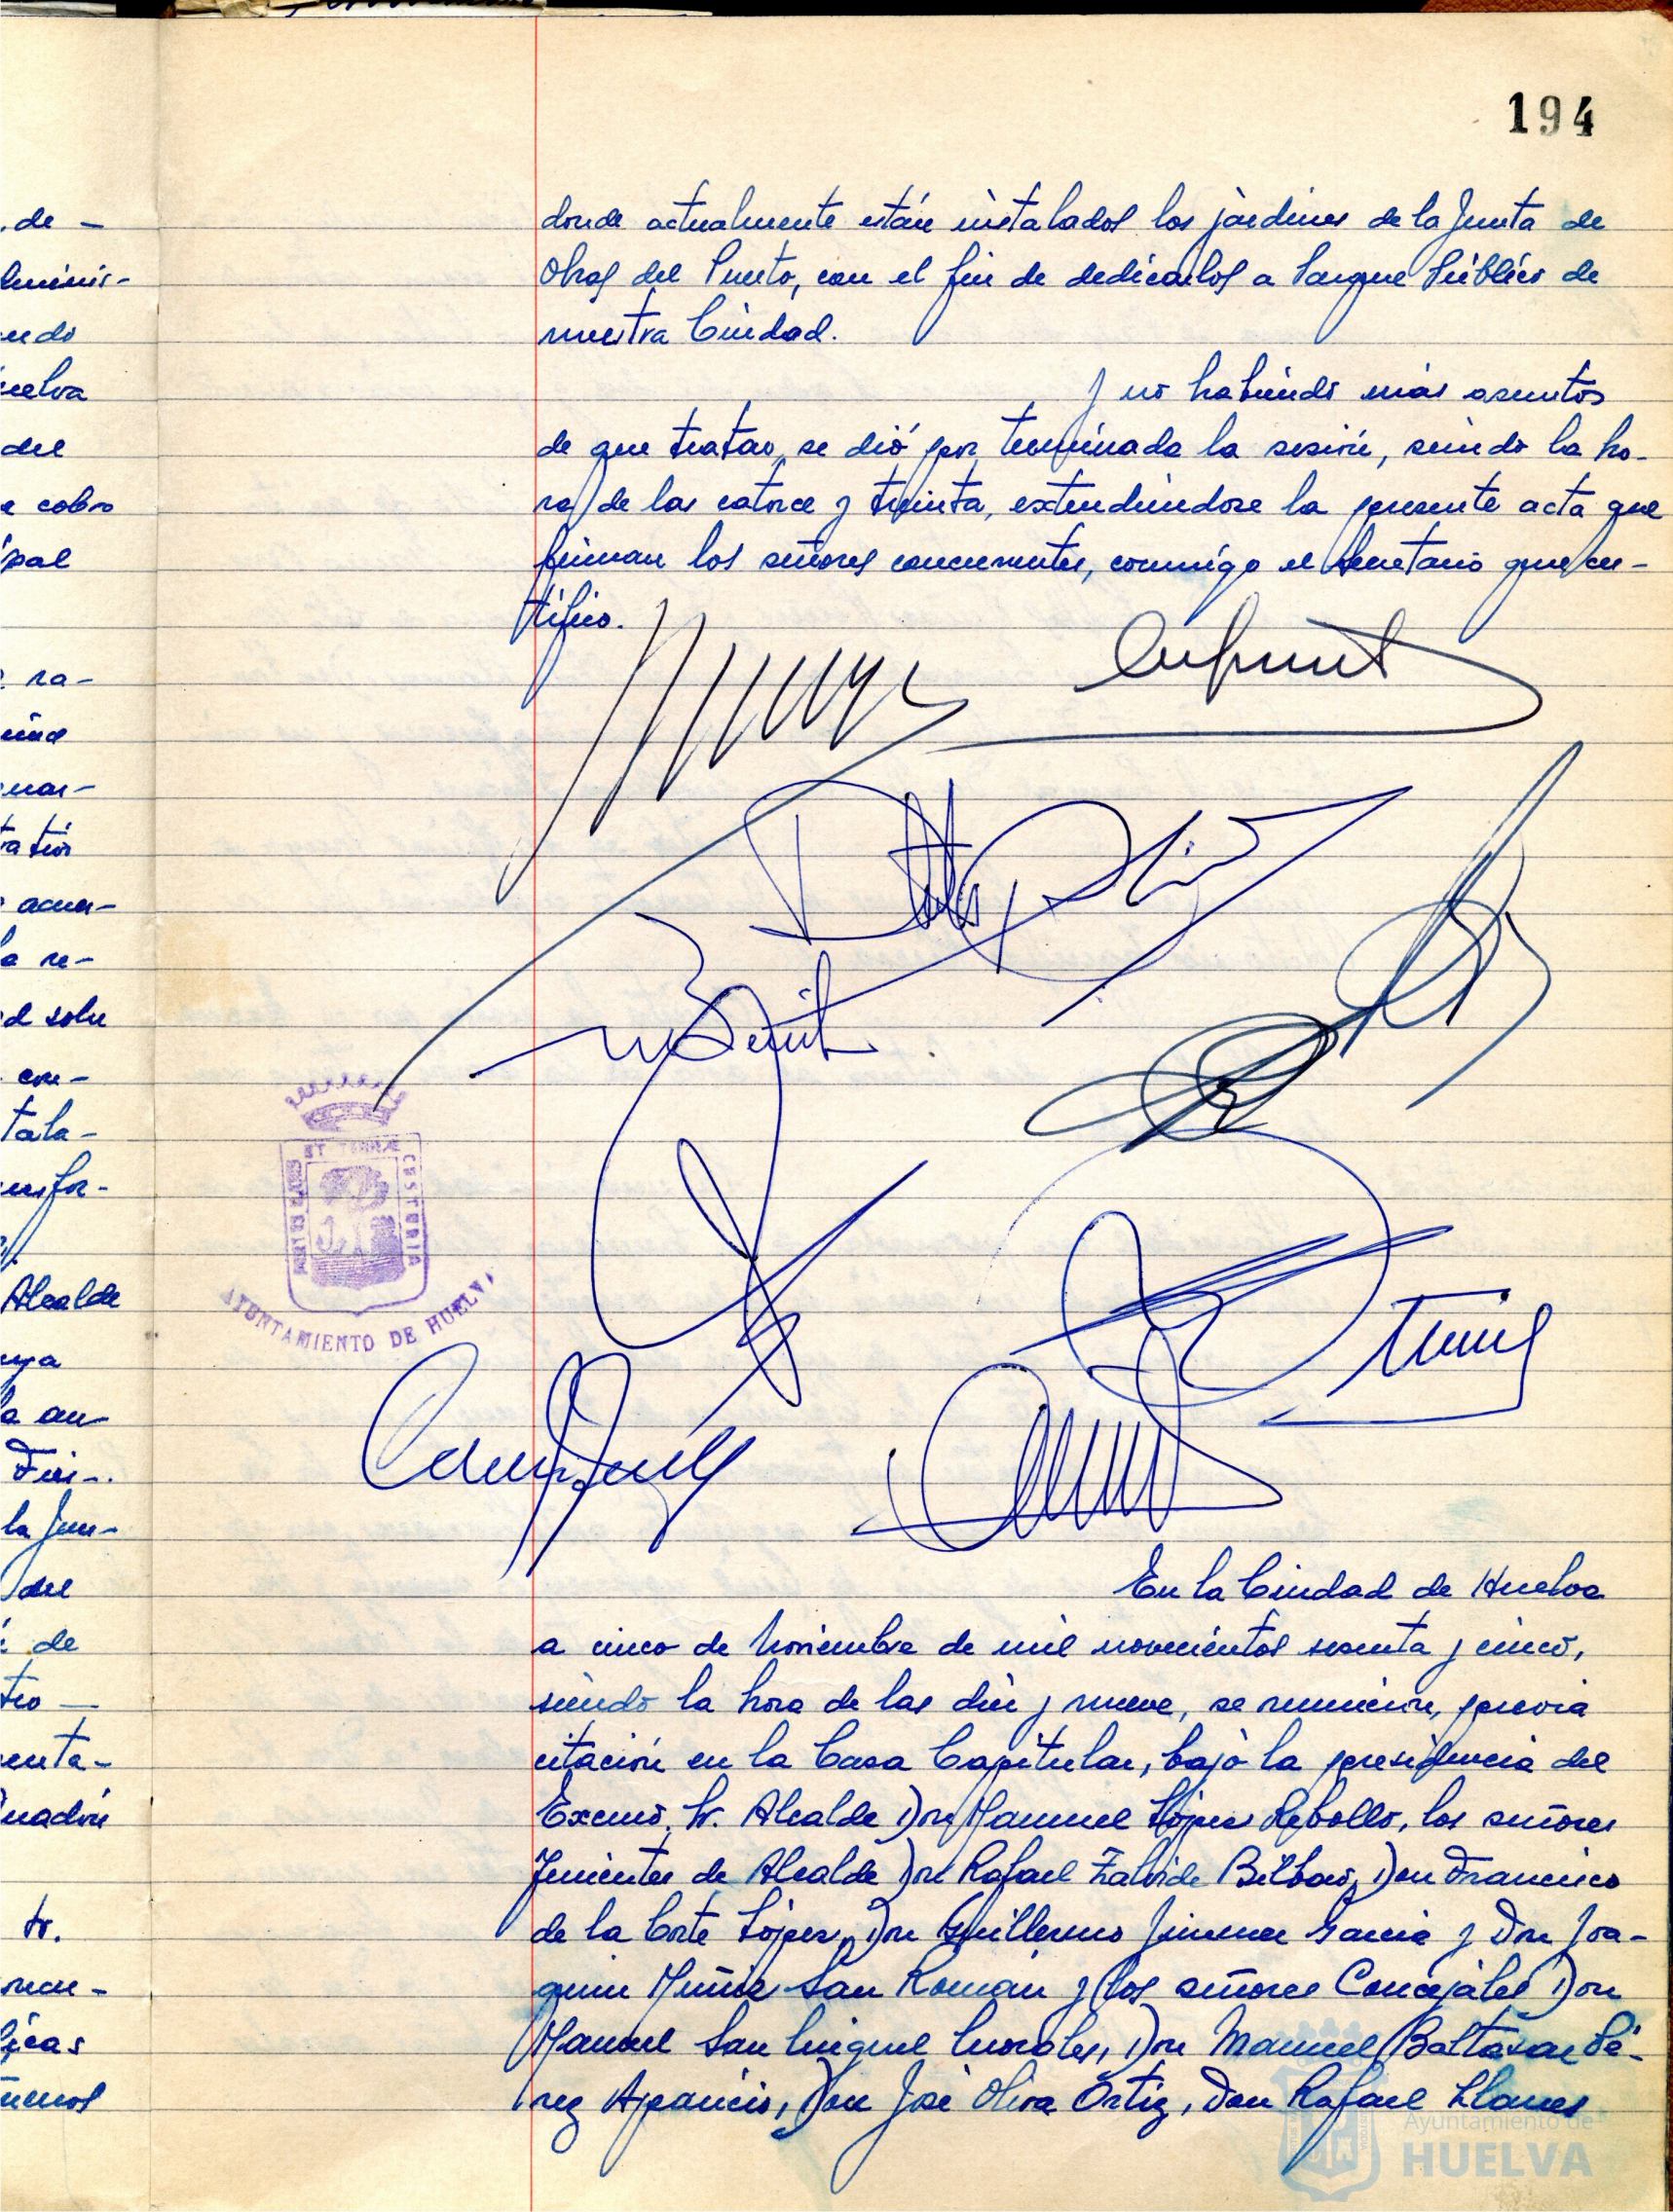 194
de -
uelva
del
e cobro
pal
ra-
e acuer-
a re-
con-
tala-
Alcalde
a au-
la Jun-
del
de
enta-
donde actualmente están instalados los jardines de la Junta de
Obras del Puerto, con el fin de dedicarlos a Parque Público de
nuestra Ciudad.
y no habiendo más asuntos
de que tratar, se dió por terminada la sesión, siendo la ho-
ra de las catorce y treinta, extendiéndose la presente acta que
firman los señores concurrentes, conmigo el Secretario que cer-
tifico.
ET TERRAE
CUSTODIA
AYUNTAMIENTO DE HUELVA
En la Ciudad de Huelva
a cinco de Noviembre de mil novecientos sesenta y cinco,
siendo la hora de las diez y nueve, se reunieron, previa
citación en la Casa Capitular, bajo la presidencia del
Excmo. Sr. Alcalde Don Manuel López Rebollo, los señores
Tenientes de Alcalde Don Rafael Zalvide Bilbao, Don Francisco
de la Corte López, Don Guillermo Jimenez García y Don Joa-
quin Muñiz San Román y los señores Concejales Don
Manuel San Miguel Morales, Don Manuel Baltasar Pé-
rez Aparicio, Don José Oliva Ortiz, Don Rafael Llanes
Ayuntamiento de
HUELVA